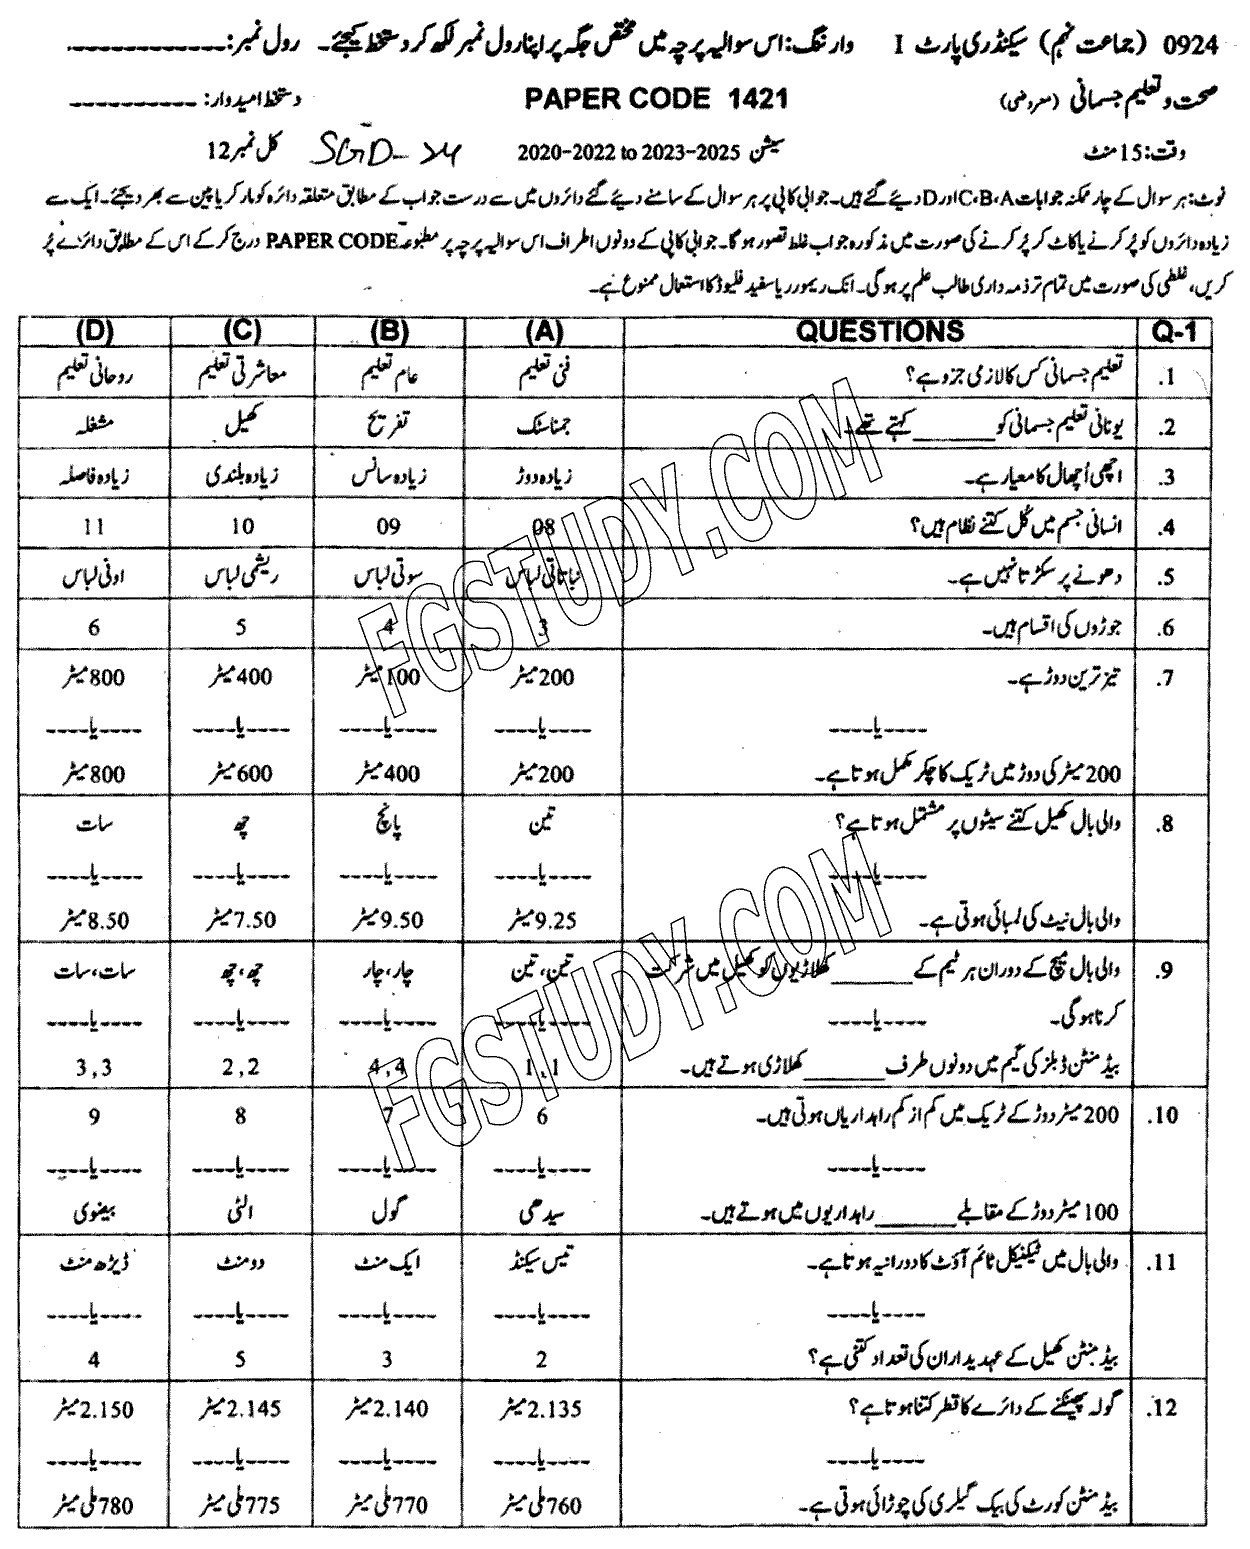 0924 (جماعت نہم) سیکنڈری پارٹ I وارننگ: اس سوالیہ پرچہ میں مختص جگہ پر اپنا رول نمبر لکھ کر دستخط کیجئے۔ رول نمبر: ------------
صحت و تعلیم جسمانی (معروضی) PAPER CODE 1421 دستخط امیدوار: ----------
وقت: 15 منٹ سیشن 2020-2022 to 2023-2025 SGD-24 کل نمبر 12
نوٹ: ہر سوال کے چار ممکنہ جوابات C،B،A اور D دیئے گئے ہیں۔ جوابی کاپی پر ہر سوال کے سامنے دیئے گئے دائروں میں سے درست جواب کے مطابق متعلقہ دائرہ کو مارکر یا پین سے بھر دیجئے۔ ایک سے
زیادہ دائروں کو پُر کرنے یا کاٹ کر پُر کرنے کی صورت میں مذکورہ جواب غلط تصور ہوگا۔ جوابی کاپی کے دونوں اطراف اس سوالیہ پرچہ پر مطبوعہ PAPER CODE درج کرکے اس کے مطابق دائرے پُر
کریں، غلطی کی صورت میں تمام تر ذمہ داری طالب علم پر ہوگی۔ انک ریموور یا سفید فلیوڈ کا استعمال ممنوع ہے۔
Q-1 QUESTIONS (A) (B) (C) (D)
1. تعلیم جسمانی کس کا لازمی جزو ہے؟ فنی تعلیم عام تعلیم معاشرتی تعلیم روحانی تعلیم
2. یونانی تعلیم جسمانی کو ________ کہتے تھے۔ جمناسٹک تفریح کھیل مشغلہ
3. اچھی اُچھال کا معیار ہے۔ زیادہ دوڑ زیادہ سانس زیادہ بلندی زیادہ فاصلہ
4. انسانی جسم میں کُل کتنے نظام ہیں؟ 08 09 10 11
5. دھونے پر سکڑتا نہیں ہے۔ نباتاتی لباس سوتی لباس ریشمی لباس اونی لباس
6. جوڑوں کی اقسام ہیں۔ 3 4 5 6
7. تیز ترین دوڑ ہے۔ 200 میٹر 100 میٹر 400 میٹر 800 میٹر
----یا---- ----یا---- ----یا---- ----یا---- ----یا----
200 میٹر کی دوڑ میں ٹریک کا چکر مکمل ہوتا ہے۔ 200 میٹر 400 میٹر 600 میٹر 800 میٹر
8. والی بال کھیل کتنے سیٹوں پر مشتمل ہوتا ہے؟ تین پانچ چھ سات
----یا---- ----یا---- ----یا---- ----یا---- ----یا----
والی بال نیٹ کی لمبائی ہوتی ہے۔ 9.25 میٹر 9.50 میٹر 7.50 میٹر 8.50 میٹر
9. والی بال میچ کے دوران ہر ٹیم کے ________ کھلاڑیوں کو کھیل میں شرکت تین، تین چار، چار چھ، چھ سات، سات
کرنا ہوگی۔ ----یا---- ----یا---- ----یا---- ----یا---- ----یا----
بیڈ منٹن ڈبلز کی گیم میں دونوں طرف ________ کھلاڑی ہوتے ہیں۔ 1,1 4,4 2,2 3,3
10. 200 میٹر دوڑ کے ٹریک میں کم از کم راہداریاں ہوتی ہیں۔ 6 7 8 9
----یا---- ----یا---- ----یا---- ----یا---- ----یا----
100 میٹر دوڑ کے مقابلے ________ راہداریوں میں ہوتے ہیں۔ سیدھی گول الٹی بیضوی
11. والی بال میں ٹیکنیکل ٹائم آؤٹ کا دورانیہ ہوتا ہے۔ تیس سیکنڈ ایک منٹ دو منٹ ڈیڑھ منٹ
----یا---- ----یا---- ----یا---- ----یا---- ----یا----
بیڈ منٹن کھیل کے عہدیداران کی تعداد کتنی ہے؟ 2 3 5 4
12. گولہ پھینکنے کے دائرے کا قطر کتنا ہوتا ہے؟ 2.135 میٹر 2.140 میٹر 2.145 میٹر 2.150 میٹر
----یا---- ----یا---- ----یا---- ----یا---- ----یا----
بیڈ منٹن کورٹ کی بیک گیلری کی چوڑائی ہوتی ہے۔ 760 ملی میٹر 770 ملی میٹر 775 ملی میٹر 780 ملی میٹر
FGSTUDY.COM
FGSTUDY.COM